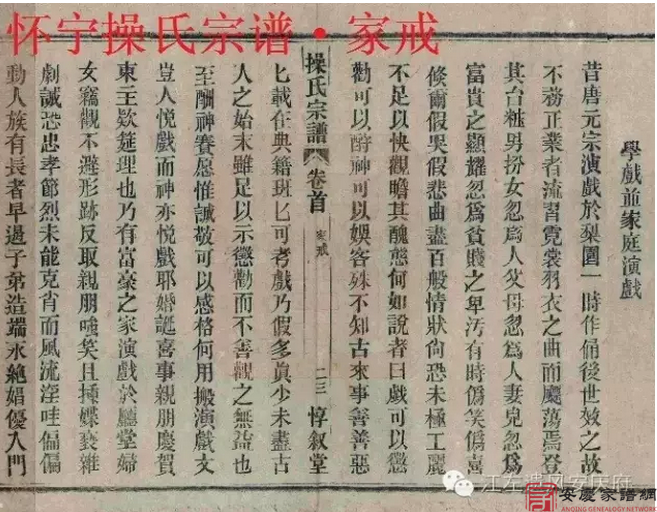 怀宁操氏宗谱·家戒
學戲並家庭演戲
昔唐元宗演戲於梨園一時作俑後世效之故
不務正業者流習霓裳羽衣之曲而飄蕩焉登
其台粧男扮女忽爲人父母忽爲人妻兒忽爲
富貴之顯耀忽爲貧賤之卑汚有時僞笑僞喜
倐爾假哭假悲曲盡百般情狀尙恐未極工麗
不足以快觀瞻其醜態何如說者曰戲可以懲
勸可以酧神可以娛客殊不知古來事善善惡
操氏宗譜 卷首 家戒 二三 惇叙堂
匕載在典籍班匕可考戲乃假多眞少未盡古
人之始末雖足以示懲勸而不善觀之無益也
至酬神賽愿惟誠敬可以感格何用搬演戲文
豈人悅戲而神亦悅戲耶婚誕喜事親朋慶賀
東主欵筵理也乃有富豪之家演戲於廳堂婦
女竊觀不避形跡反取親朋嗤笑且揷媟褻雜
劇誠恐忠孝節烈未能克肖而風流淫哇偏偏
動人族有長者早過子弟造端永絕娼優入門
江左遗风安庆府
安慶家譜網
ANQING GENEALOGY NETWORK